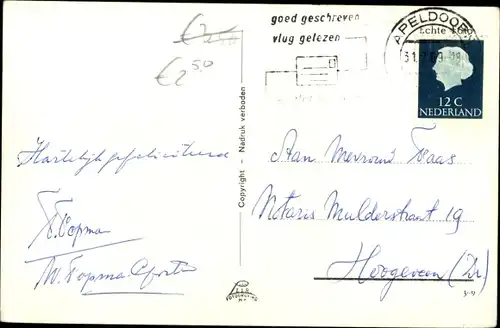 €2,50
€2,50
goed geschreven
vlug gelezen
APELDOORN
Echte Foto
12 C
NEDERLAND
Copyright - Nadruk verboden
Hartelijk gefeliciteerd
Aan Mevrouw Vaas
Notaris Mulderstraat 19
Hoogeveen (Dr)